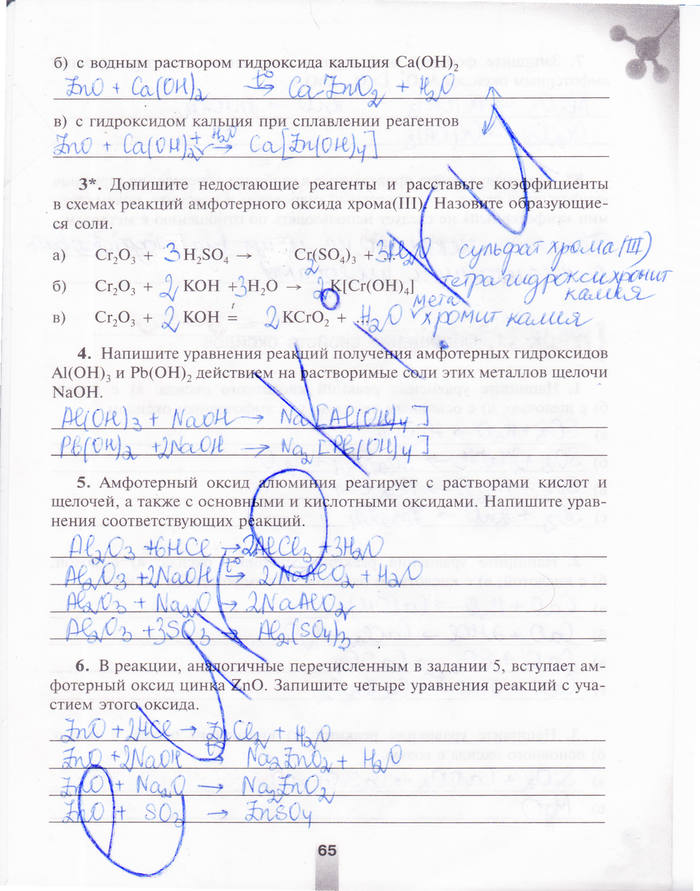 б) с водным раствором гидроксида кальция Ca(OH)₂
ZnO + Ca(OH)₂ →(t°) CaZnO₂ + H₂O
в) с гидроксидом кальция при сплавлении реагентов
ZnO + Ca(OH)₂ + H₂O → Ca[Zn(OH)₄]
3*. Допишите недостающие реагенты и расставьте коэффициенты
в схемах реакций амфотерного оксида хрома(III). Назовите образующие-
ся соли.
а) Cr₂O₃ + 3H₂SO₄ → Cr₂(SO₄)₃ + 3H₂O сульфат хрома (III)
б) Cr₂O₃ + 2KOH + 3H₂O → 2K[Cr(OH)₄] тетрагидроксихромит калия
в) Cr₂O₃ + 2KOH =(t) 2KCrO₂ + ... H₂O метахромит калия
4. Напишите уравнения реакций получения амфотерных гидроксидов
Al(OH)₃ и Pb(OH)₂ действием на растворимые соли этих металлов щелочи
NaOH.
Al(OH)₃ + NaOH → Na[Al(OH)₄]
Pb(OH)₂ + 2NaOH → Na₂[Pb(OH)₄]
5. Амфотерный оксид алюминия реагирует с растворами кислот и
щелочей, а также с основными и кислотными оксидами. Напишите урав-
нения соответствующих реакций.
Al₂O₃ + 6HCl → 2AlCl₃ + 3H₂O
Al₂O₃ + 2NaOH →(t°) 2NaAlO₂ + H₂O
Al₂O₃ + Na₂O → 2NaAlO₂
Al₂O₃ + 3SO₃ → Al₂(SO₄)₃
6. В реакции, аналогичные перечисленным в задании 5, вступает ам-
фотерный оксид цинка ZnO. Запишите четыре уравнения реакций с уча-
стием этого оксида.
ZnO + 2HCl → ZnCl₂ + H₂O
ZnO + 2NaOH →(t°) Na₂ZnO₂ + H₂O
ZnO + Na₂O → Na₂ZnO₂
ZnO + SO₃ → ZnSO₄
65